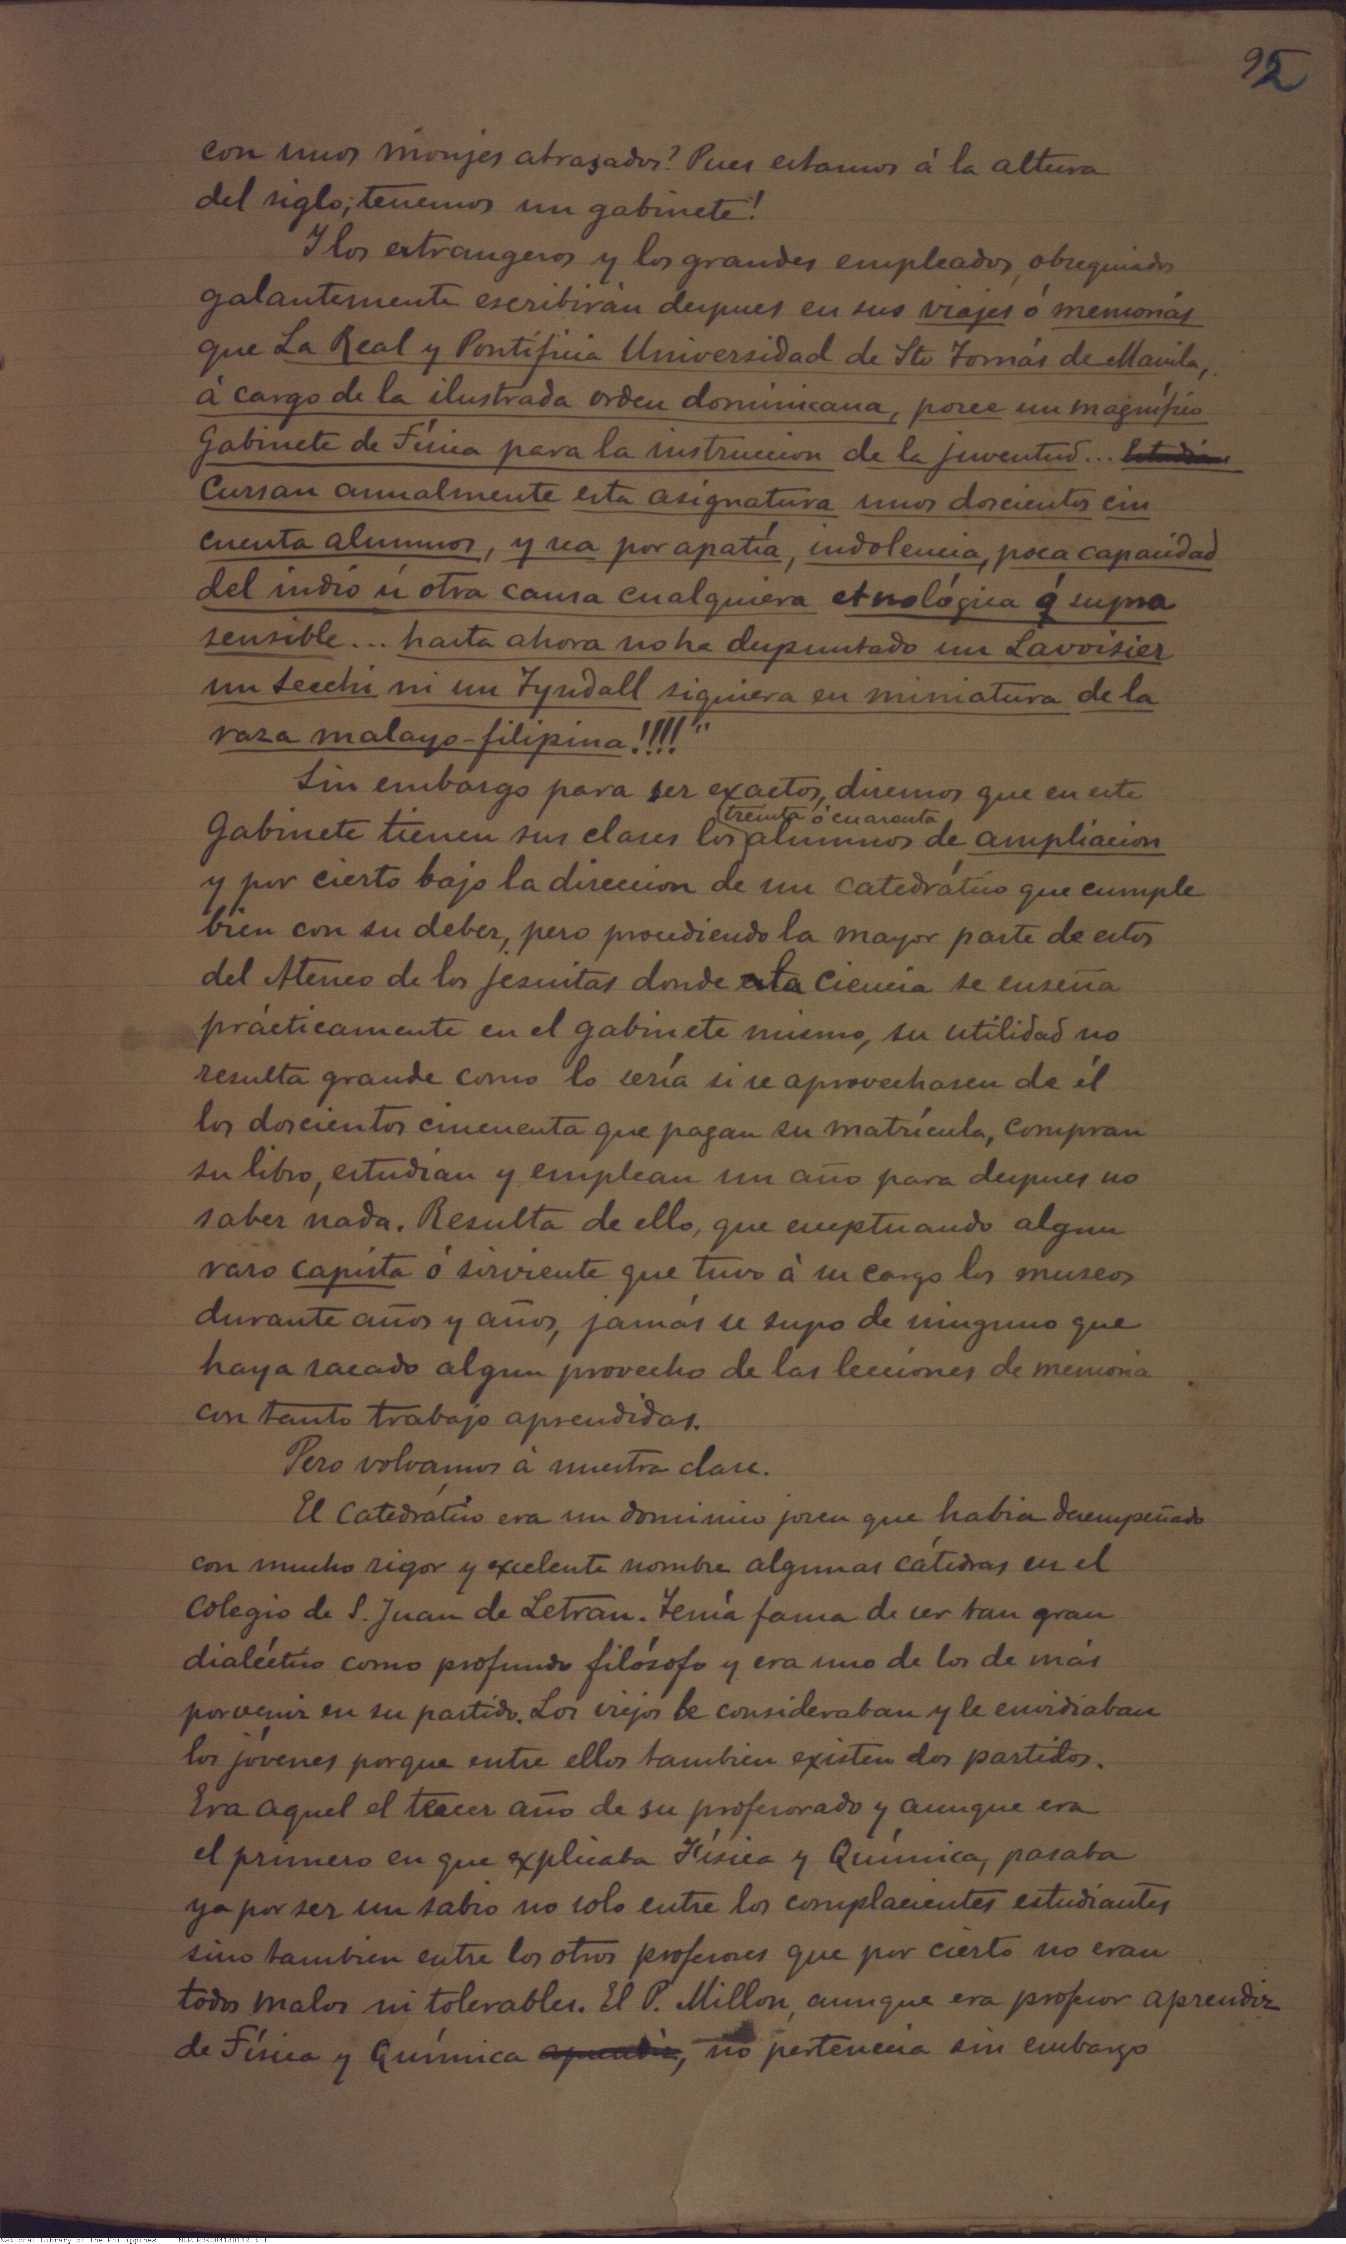 95
con unos monjes atrasados? Pues estamos á la altura
del siglo; tenemos un gabinete!
Y los extrangeros y los grandes empleados, obsequiados
galantemente escribirán despues en sus viajes ó memorias
que La Real y Pontificia Universidad de Sto Tomás de Manila,
á cargo de la ilustrada orden dominicana, posee un magnífico
Gabinete de Física para la instruccion de la juventud...
Cursan anualmente esta asignatura unos doscientos cin
cuenta alumnos, y sea por apatía, indolencia, poca capacidad
del indio ú otra causa cualquiera etnológica ó supra
sensible... hasta ahora no ha despuntado un Lavoisier
un Secchi ni un Tyndall siquiera en miniatura de la
raza malayo-filipina!!!!"
Sin embargo para ser exactos, diremos que en este
treinta ó cuarenta
Gabinete tienen sus clases los alumnos de ampliacion
y por cierto bajo la direccion de un catedrático que cumple
bien con su deber, pero procediendo la mayor parte de estos
del Ateneo de los jesuitas donde esta ciencia se enseña
prácticamente en el gabinete mismo, su utilidad no
resulta grande como lo sería si se aprovechasen de él
los doscientos cincuenta que pagan su matrícula, compran
su libro, estudian y emplean un año para despues no
saber nada. Resulta de ello, que exceptuando algun
raro capista ó sirviente que tuvo á su cargo los museos
durante años y años, jamás se supo de ninguno que
haya sacado algun provecho de las lecciones de memoria
con tanto trabajo aprendidas.
Pero volvamos á nuestra clase.
El Catedrático era un dominico joven que habia desempeñado
con mucho rigor y excelente nombre algunas cátedras en el
Colegio de S. Juan de Letran. Tenía fama de ser tan gran
dialéctico como profundo filósofo y era uno de los de más
porvenir en su partido. Los viejos le consideraban y le envidiaban
los jóvenes porque entre ellos tambien existen dos partidos.
Era aquel el tercer año de su profesorado y aunque era
el primero en que explicaba Física y Química, pasaba
ya por ser un sabio no solo entre los complacientes estudiantes
sino tambien entre los otros profesores que por cierto no eran
todos malos ni tolerables. El P. Millon, aunque era profesor aprendiz
de Física y Química aprendiz, no pertenecia sin embargo